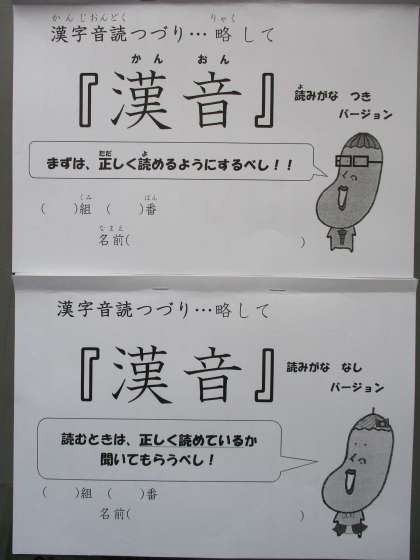 かんじおんどく りゃく
漢字音読つづり…略して
かん おん
『漢音』
読みがな つき
よ
バージョン
ただ よ
まずは、正しく読めるようにするべし！！
くみ ばん
( )組 ( )番
なまえ
名前( )
漢字音読つづり…略して
『漢音』
読みがな なし
バージョン
読むときは、正しく読めているか
聞いてもらうべし！
( )組 ( )番
名前( )